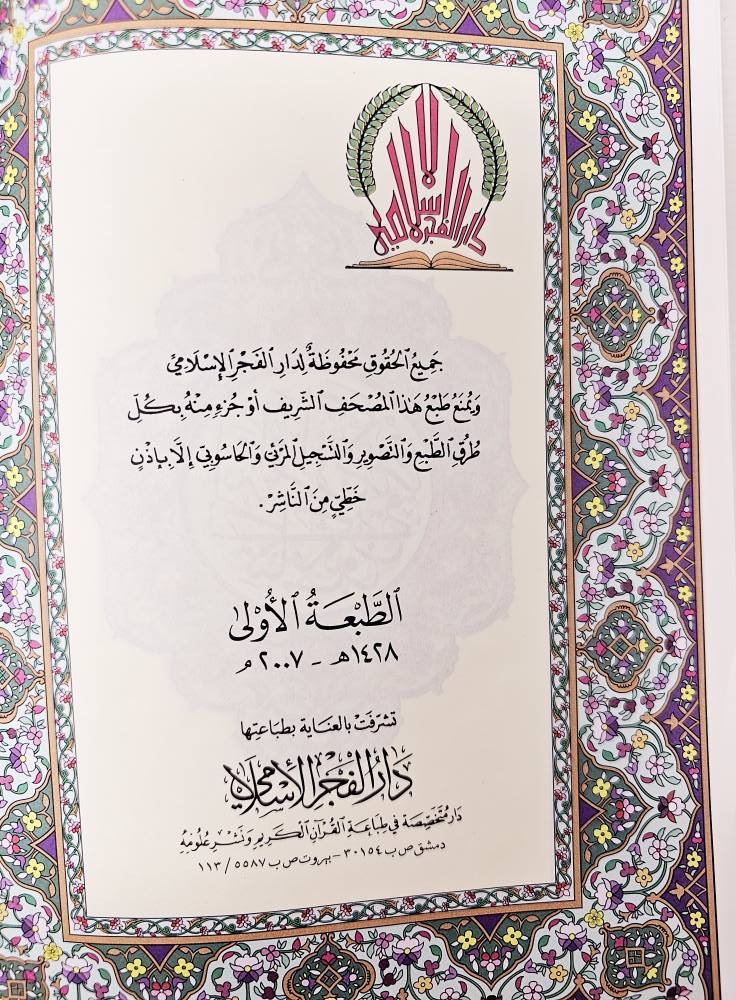 دار الفجر الإسلامي
جَمِيعُ الحُقُوقِ مَحْفُوظَةٌ لِدَارِ الفَجْرِ الإِسْلَامِيِّ
وَيُمْنَعُ طَبْعُ هَذَا المُصْحَفِ الشَّرِيفِ أَوْ جُزْءٍ مِنْهُ بِكُلِّ
طُرُقِ الطَّبْعِ وَالتَّصْوِيرِ وَالتَّسْجِيلِ المَرْئِيِّ وَالحَاسُوبِيِّ إِلَّا بِإِذْنٍ
خَطِّيٍّ مِنَ النَّاشِرِ.
الطَّبْعَةُ الأُوْلَى
١٤٢٨ هـ - ٢٠٠٧ م
تشرّفَتْ بالعناية بطبَاعتِها
دَارُ الفَجْرِ الإِسْلَامِيِّ
دَارٌ مُتَخَصِّصَة في طِبَاعَةِ القُرْآنِ الكَرِيمِ وَنَشْرِ عُلُومِهِ
دمشق ص ب ٣٠١٥٤ - بيروت ص ب ٥٥٨٧ / ١١٣